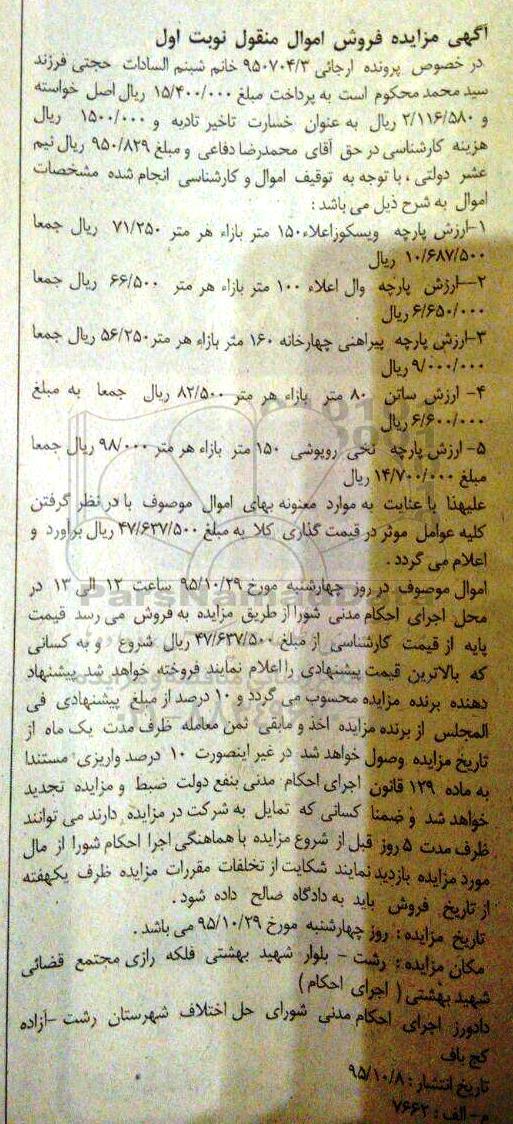 آگهی مزایده فروش اموال منقول نوبت اول
در خصوص پرونده ارجائی ۹۵۰۷۰۴/۳ خانم شبنم السادات حجتی فرزند
سید محمد محکوم است به پرداخت مبلغ ۱۵/۴۰۰/۰۰۰ ریال اصل خواسته
و ۲/۱۱۶/۵۸۰ ریال به عنوان خسارت تاخیر تادیه و ۱۵۰۰/۰۰۰ ریال
هزینه کارشناسی در حق آقای محمدرضا دفاعی و مبلغ ۹۵۰/۸۲۹ ریال نیم
عشر دولتی، با توجه به توقیف اموال و کارشناسی انجام شده مشخصات
اموال به شرح ذیل می باشد:
۱-ارزش پارچه ویسکوزاعلاء۱۵۰ متر بازاء هر متر ۷۱/۲۵۰ ریال جمعا
۱۰/۶۸۷/۵۰۰ ریال
۲-ارزش پارچه وال اعلاء ۱۰۰ متر بازاء هر متر ۶۶/۵۰۰ ریال جمعا
۶/۶۵۰/۰۰۰ ریال
۳-ارزش پارچه پیراهنی چهارخانه ۱۶۰ متر بازاء هر متر۵۶/۲۵۰ ریال جمعا
۹/۰۰۰/۰۰۰ ریال
۴- ارزش ساتن ۸۰ متر بازاء هر متر ۸۲/۵۰۰ ریال جمعا به مبلغ
۶/۶۰۰/۰۰۰ ریال
۵- ارزش پارچه نخی روپوشی ۱۵۰ متر بازاء هر متر ۹۸/۰۰۰ ریال جمعا
مبلغ ۱۴/۷۰۰/۰۰۰ ریال
علیهذا با عنایت به موارد معنونه بهای اموال موصوف با در نظر گرفتن
کلیه عوامل موثر در قیمت گذاری کلا به مبلغ ۴۷/۶۳۷/۵۰۰ ریال برآورد و
اعلام می گردد.
اموال موصوف در روز چهارشنبه مورخ ۹۵/۱۰/۲۹ ساعت ۱۲ الی ۱۳ در
محل اجرای احکام مدنی شورا از طریق مزایده به فروش می رسد قیمت
پایه از قیمت کارشناسی از مبلغ ۴۷/۶۳۷/۵۰۰ ریال شروع و به کسانی
که بالاترین قیمت پیشنهادی را اعلام نمایند فروخته خواهد شد پیشنهاد
دهنده برنده مزایده محسوب می گردد و ۱۰ درصد از مبلغ پیشنهادی فی
المجلس از برنده مزایده اخذ و مابقی ثمن معامله ظرف مدت یک ماه از
تاریخ مزایده وصول خواهد شد در غیر اینصورت ۱۰ درصد واریزی مستندا
به ماده ۱۲۹ قانون اجرای احکام مدنی بنفع دولت ضبط و مزایده تجدید
خواهد شد و ضمنا کسانی که تمایل به شرکت در مزایده دارند می توانند
ظرف مدت ۵ روز قبل از شروع مزایده با هماهنگی اجرا احکام شورا از مال
مورد مزایده بازدید نمایند شکایت از تخلفات مقررات مزایده ظرف یکهفته
از تاریخ فروش باید به دادگاه صالح داده شود.
تاریخ مزایده: روز چهارشنبه مورخ ۹۵/۱۰/۲۹ می باشد.
مکان مزایده: رشت - بلوار شهید بهشتی فلکه رازی مجتمع قضائی
شهید بهشتی( اجرای احکام)
دادورز اجرای احکام مدنی شورای حل اختلاف شهرستان رشت -آزاده
کج باف
تاریخ انتشار: ۹۵/۱۰/۸
م- الف: ۷۶۶۲